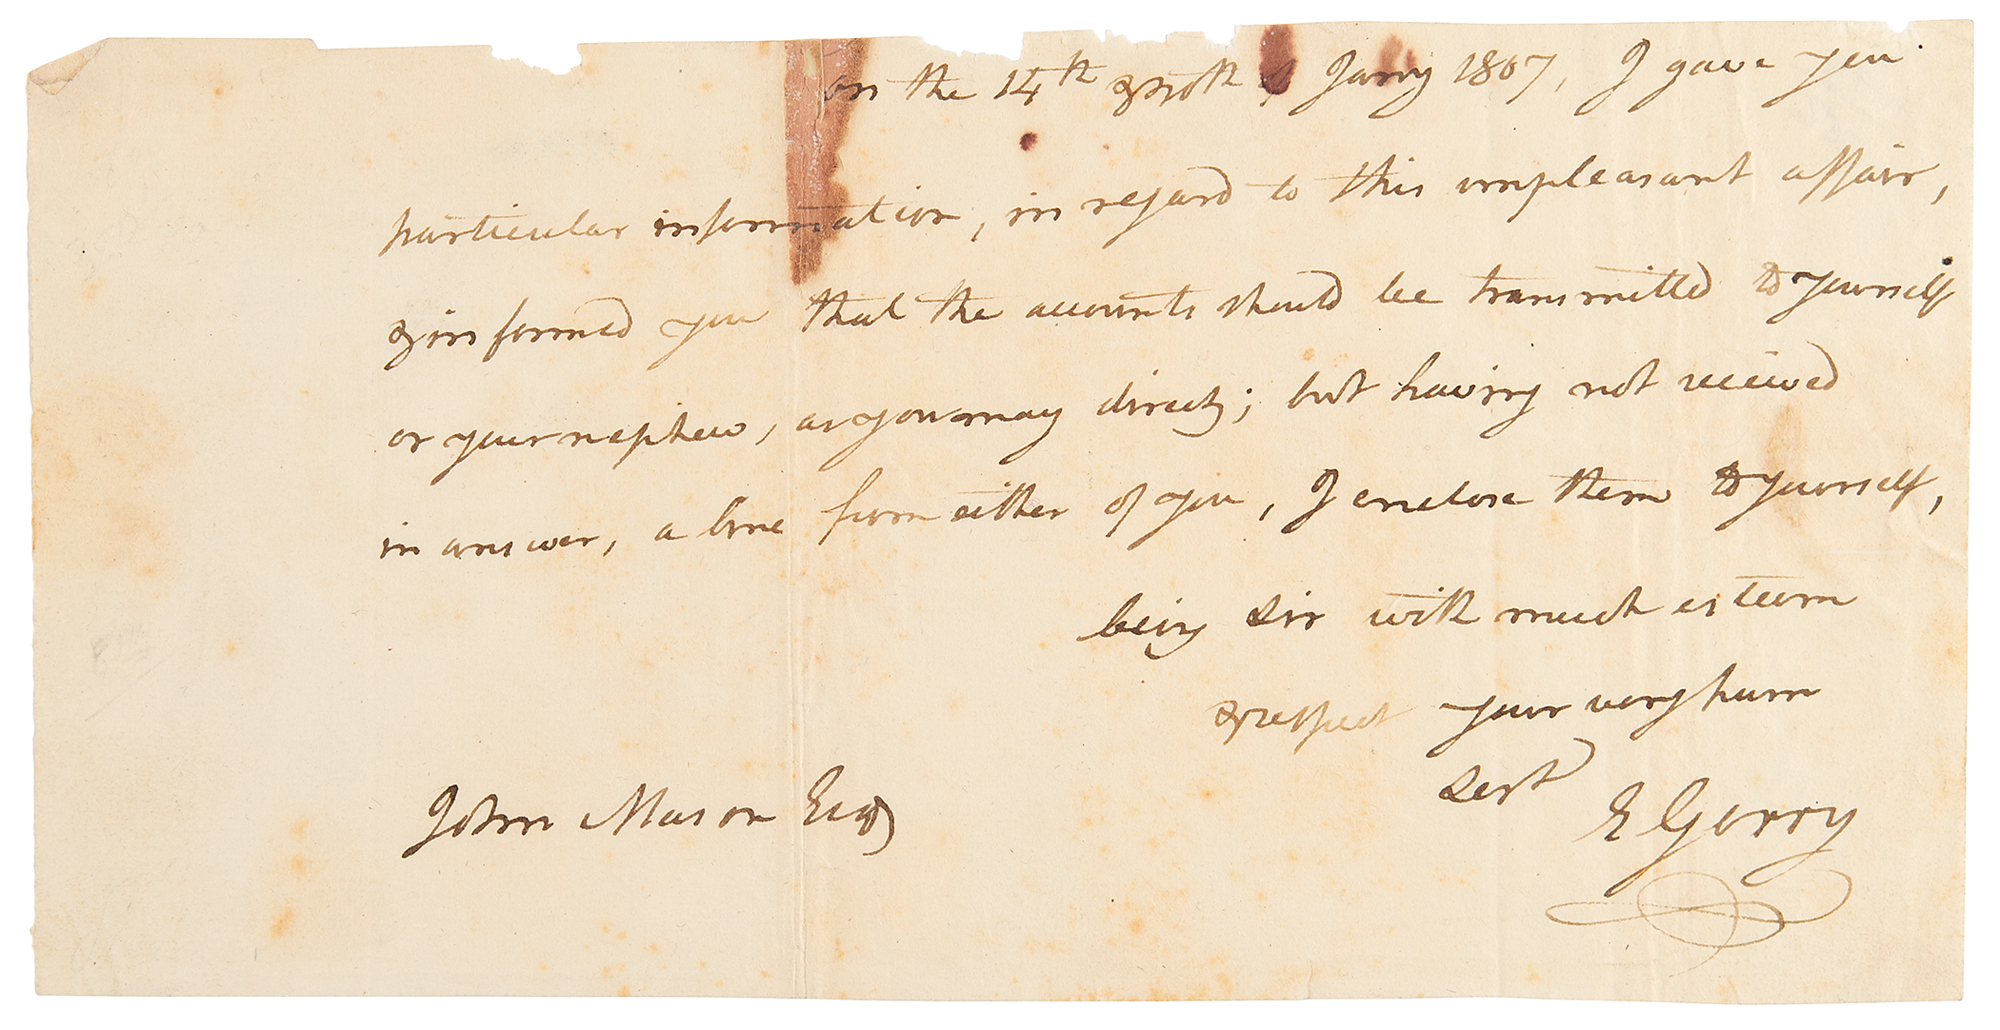 on the 14th & 30th of Janry 1807, I gave you
particular information, in regard to this unpleasant affair,
& informed you that the accounts should be transmitted to yourself
or your nephew, as you may direct; but having not received
in answer, a line from either of you, I enclose them to yourself,
being Sir with much esteem
& respect your very hum
Sert
E Gerry
John Mason Esqr